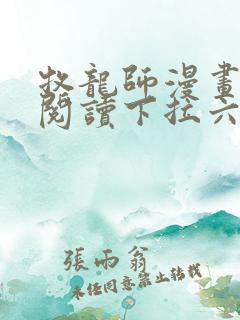 牧龍師漫畫
閱讀下拉六
張雨翁
未經同意禁止轉載